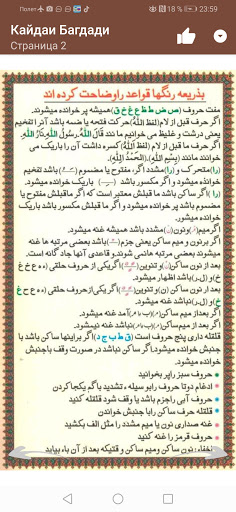 Полет 18 % 23:59
Кайдаи Багдади
Страница 2
بذریعه رنگها قواعد را وضاحت کرده اند
هفت حروف (ص ض ط ظ غ خ ق) همیشه پر خوانده میشوند.
اگر حرف قبل از لام (لفظ اللّٰه) حرکت فتحه یا ضمه باشد آنرا تفخیم
یعنی درشت و غلیظ می خوانیم مانند قَالَ اللّٰهُ. رَسُولُ اللّٰهِ. نَارُ اللّٰهِ.
اگر حرف ما قبل از لام (لفظ اللّٰه) کسره داشت آن را باریک می
خوانند مانند (بِسْمِ اللّٰهِ). (اَلْحَمْدُ لِلّٰهِ).
(را) متحرک و (را) مشدد اگر، مفتوح یا مضموم باشد تفخیم
خوانده میشود و اگر مکسور باشد باریک خوانده میشود.
(را) اگر ساکن باشد ما قبلش معتبر است که اگر ماقبلش مفتوح یا
مضموم باشد پر خوانده میشود و اگر ما قبلش مکسور باشد باریک
خوانده میشود.
اگر میم (م) ونون (ن) مشدد باشد همیشه غنه میشود.
اگر برنون و میم ساکن یعنی جزم باشد بعضی مرتبه ها غنه
میشوند بعضی مرتبه هائی نمی شوند و قاعدی آنها جداگانه است.
بعد از نون ساکن (ن) و تنوین اگر یکی از حروف حلقی (ء ه ع ح غ
خ) و (ل. ر) باشد اظهار میشود.
بعد از نون ساکن (ن) و تنوین اگر یکی از حروف حلقی (ء ه ع ح غ
خ) و (ل. ر) نباشد غنه میشود.
اگر بعد از میم ساکن (م) (ب یا م) آمد غنه میشود.
اگر بعد از میم ساکن (م) (ب یا م) نباشد غنه نمیشود.
قلقله داری پنج حروف است (ق ط ب ج د) اگر براینها ساکن باشد با
جنبش خوانده میشود. اگر ساکن نباشد در صورت وقف باجنبش
خوانده میشود.
حروف سبز را پر بخوانید
ادغام دوتا حروف رابو سیله ، تشدید باگم یکجا کردن
حروف آبی را جزم باشد یا وقف شود قلقله کنید
قلقله حرف ساکن رابا جنبش خواندن
غنه صداری نون یا میم مشدد را مثل الف بکشید
حروف قرمز را غنه کنید
اخفاء: نون ساکن ومیم ساکن و قتیکه بعد از آن باء بیاید